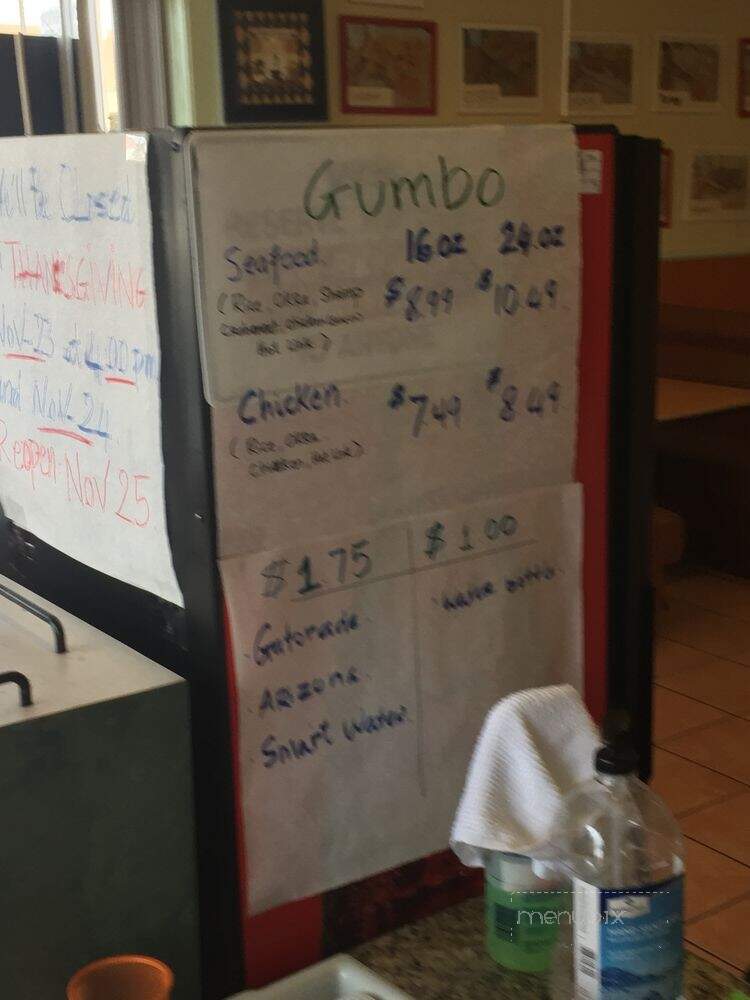 Will be Closed
THANKSGIVING
Nov-23 at 4:00 pm
and Nov-24
Reopen Nov 25
Gumbo
Seafood 16 oz 24 oz
(Rice, Okra, Shrimp $8.99 $10.49
Hot Link)
Chicken $7.49 $8.49
(Rice, Okra
Chicken, Hot Link)
$1.75 $1.00
Gatorade Water Bottle
Arizona
Smart Water
menupix